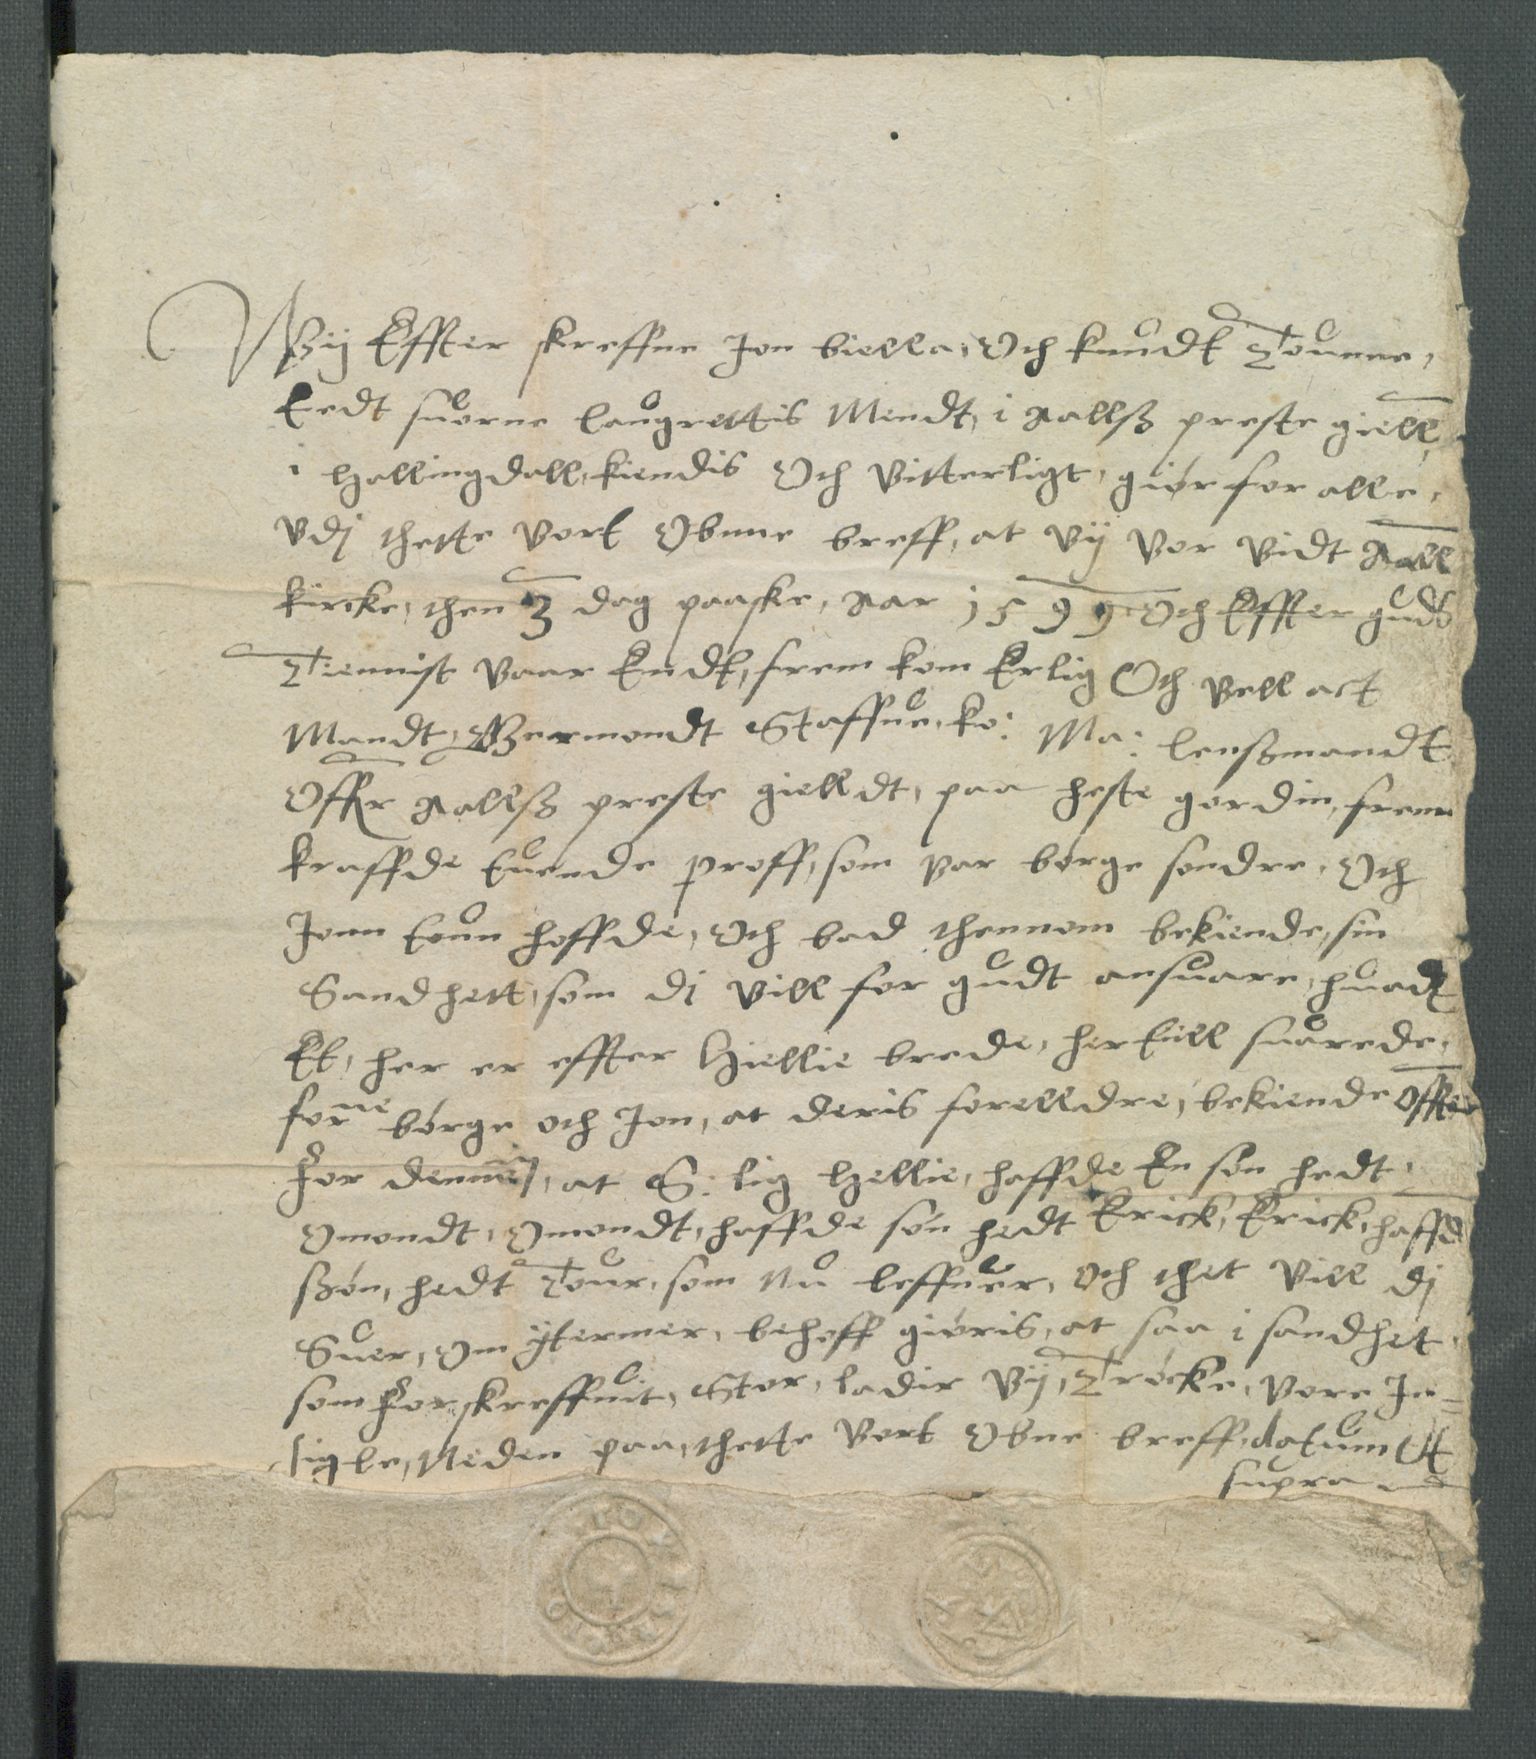 Wij Effter skreffne Jon biella, Och knudt Tounne,
Eedt suorne laugrettis Mendt, i Aallß preste giell,
i Hallingdall, kiendis Och vitterligt, giør for alle,
vdj thette vort Obnne breff, at vij vor vidt Aall
kircke, then 3 dag paaske, Aar 1599 Och Effter guds
Tiennist vaar Endt, frem kom Erlig Och vell act
Mandt, Germondt Staffne, ko: Ma: lenßmandt
Offr Aallß preste gielldt, paa heste gordin, frem
kraffde Euende proff, som var børge søndre, Och
Jonn Eoun hoffde, Och bad thennom bekiende, sin
Sandhett, som dj vill for gudt ansuare, huadt
Et, her er effter Hiellie brede, hertill suarede,
forne børge och Jon, at deris forelldre, bekiende offter
For dennem, at S: lig Hellie, haffde En søn hedt,
Omondt, Omondt, haffde søn hedt Erick, Erick, haffd
ßøn, hedt Tour, som Nu leffuer, och thet vill dj
Suer, om ÿtermer, behoff giøris, at saa i sandhet,
som For skreffuit, Stor, ladir vij, Trøcke, vore In=
sigle, Neden paa, thette vort Obne breff, datum Ut
supra